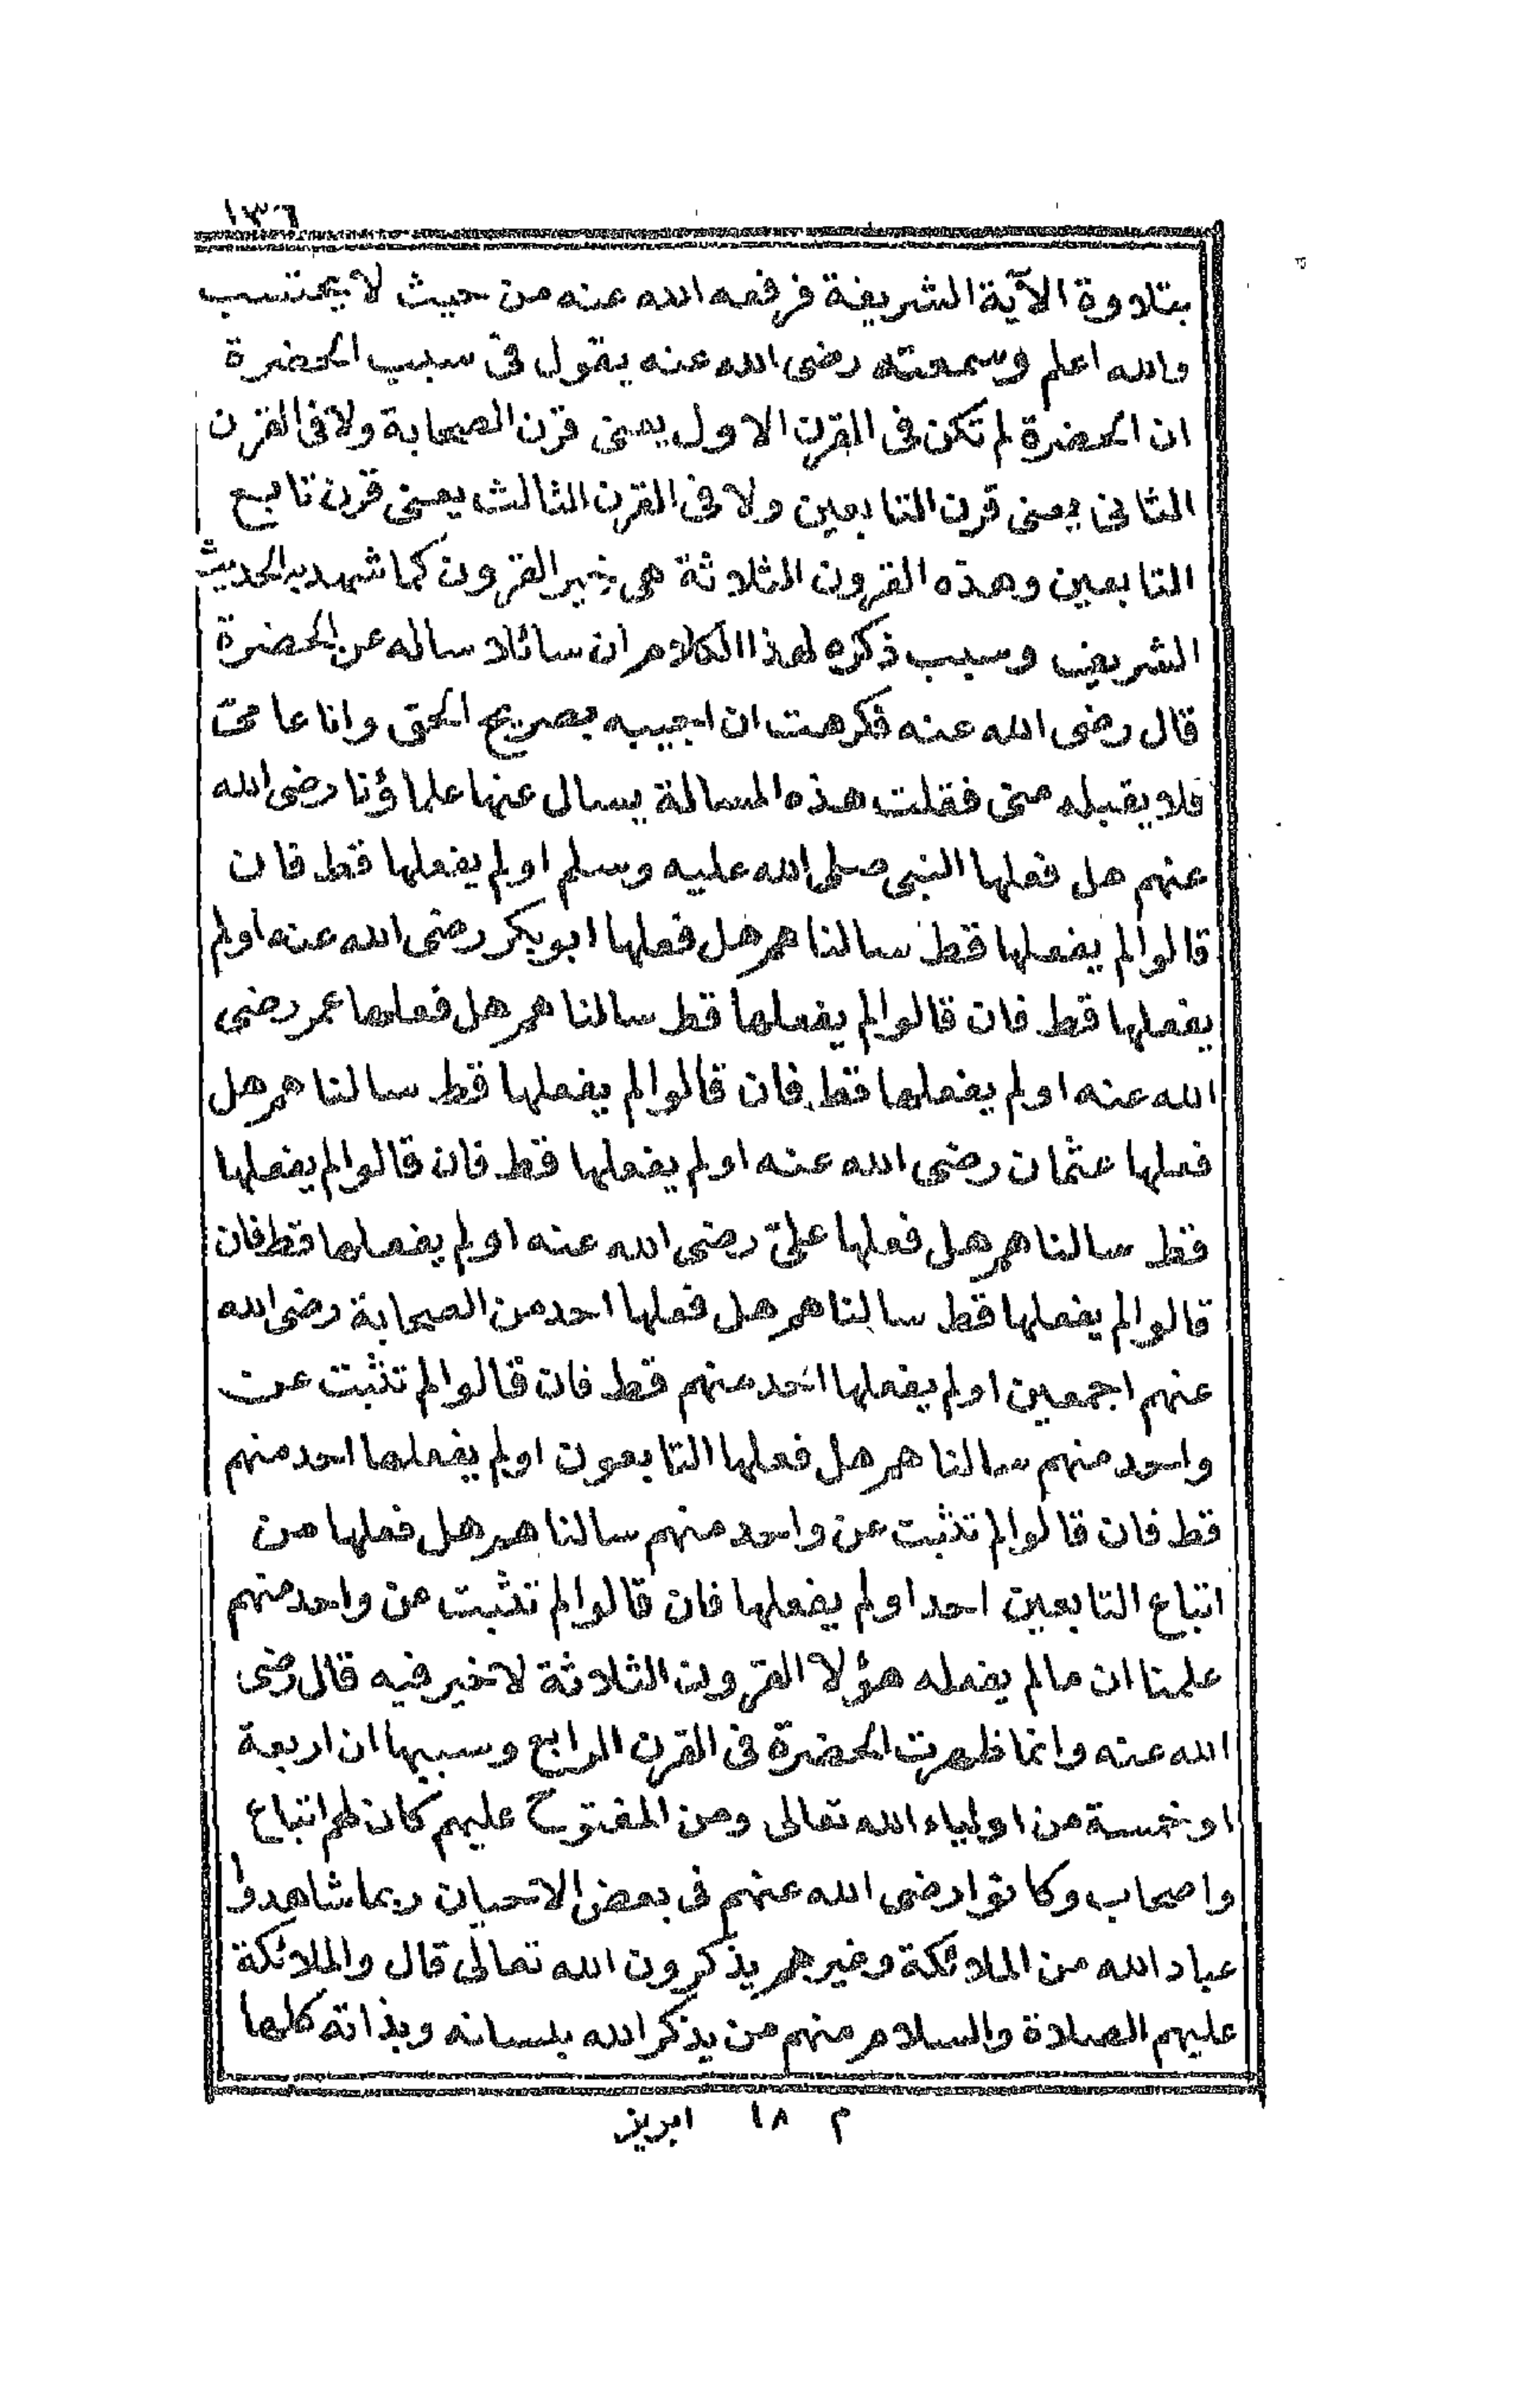 ١٣٦
بتلاوة الآية الشريفة فرفعه الله عنه من حيث لا يحتسب
والله اعلم وسمعته رضى الله عنه يقول فى سبب الحضرة
ان الحضرة لم تكن فى القرن الاول يعنى قرن الصحابة ولا فى القرن
الثانى يعنى قرن التابعين ولا فى القرن الثالث يعنى قرن تابع
التابعين وهذه القرون الثلاثة هى خير القرون كما شهد به الحديث
الشريف وسبب ذكره لهذا الكلام ان سائلا ساله عن الحضرة
قال رضى الله عنه فكرهت ان اجيبه بصريح الحق وانا عامى
فلا يقبله منى فقلت هذه المسالة يسال عنها علماؤنا رضى الله
عنهم هل فعلها النبى صلى الله عليه وسلم او لم يفعلها قط فان
قالوا لم يفعلها قط سالناهم هل فعلها ابو بكر رضى الله عنه او لم
يفعلها قط فان قالوا لم يفعلها قط سالناهم هل فعلها عمر رضى
الله عنه او لم يفعلها قط فان قالوا لم يفعلها قط سالناهم هل
فعلها عثمان رضى الله عنه او لم يفعلها قط فان قالوا لم يفعلها
قط سالناهم هل فعلها علىّ رضى الله عنه او لم يفعلها قط فان
قالوا لم يفعلها قط سالناهم هل فعلها احد من الصحابة رضى الله
عنهم اجمعين او لم يفعلها احد منهم قط فان قالوا لم تثبت عن
واحد منهم سالناهم هل فعلها التابعون او لم يفعلها احد منهم
قط فان قالوا لم تثبت عن واحد منهم سالناهم هل فعلها من
اتباع التابعين احد او لم يفعلها فان قالوا لم تثبت عن واحد منهم
علمنا ان ما لم يفعله هؤلا القرون الثلاثة لا خير فيه قال رضى
الله عنه وانما ظهرت الحضرة فى القرن الرابع وسببها ان اربعة
او خمسة من اولياء الله تعالى ومن المفتوح عليهم كان لهم اتباع
واصحاب وكانوا رضى الله عنهم فى بعض الاحيان ربما شاهدوا
عباد الله من الملائكة وغيرهم يذكرون الله تعالى قال والملائكة
عليهم الصلاة والسلام منهم من يذكر الله بلسانه وبذاته كلها
م ١٨ ابريز